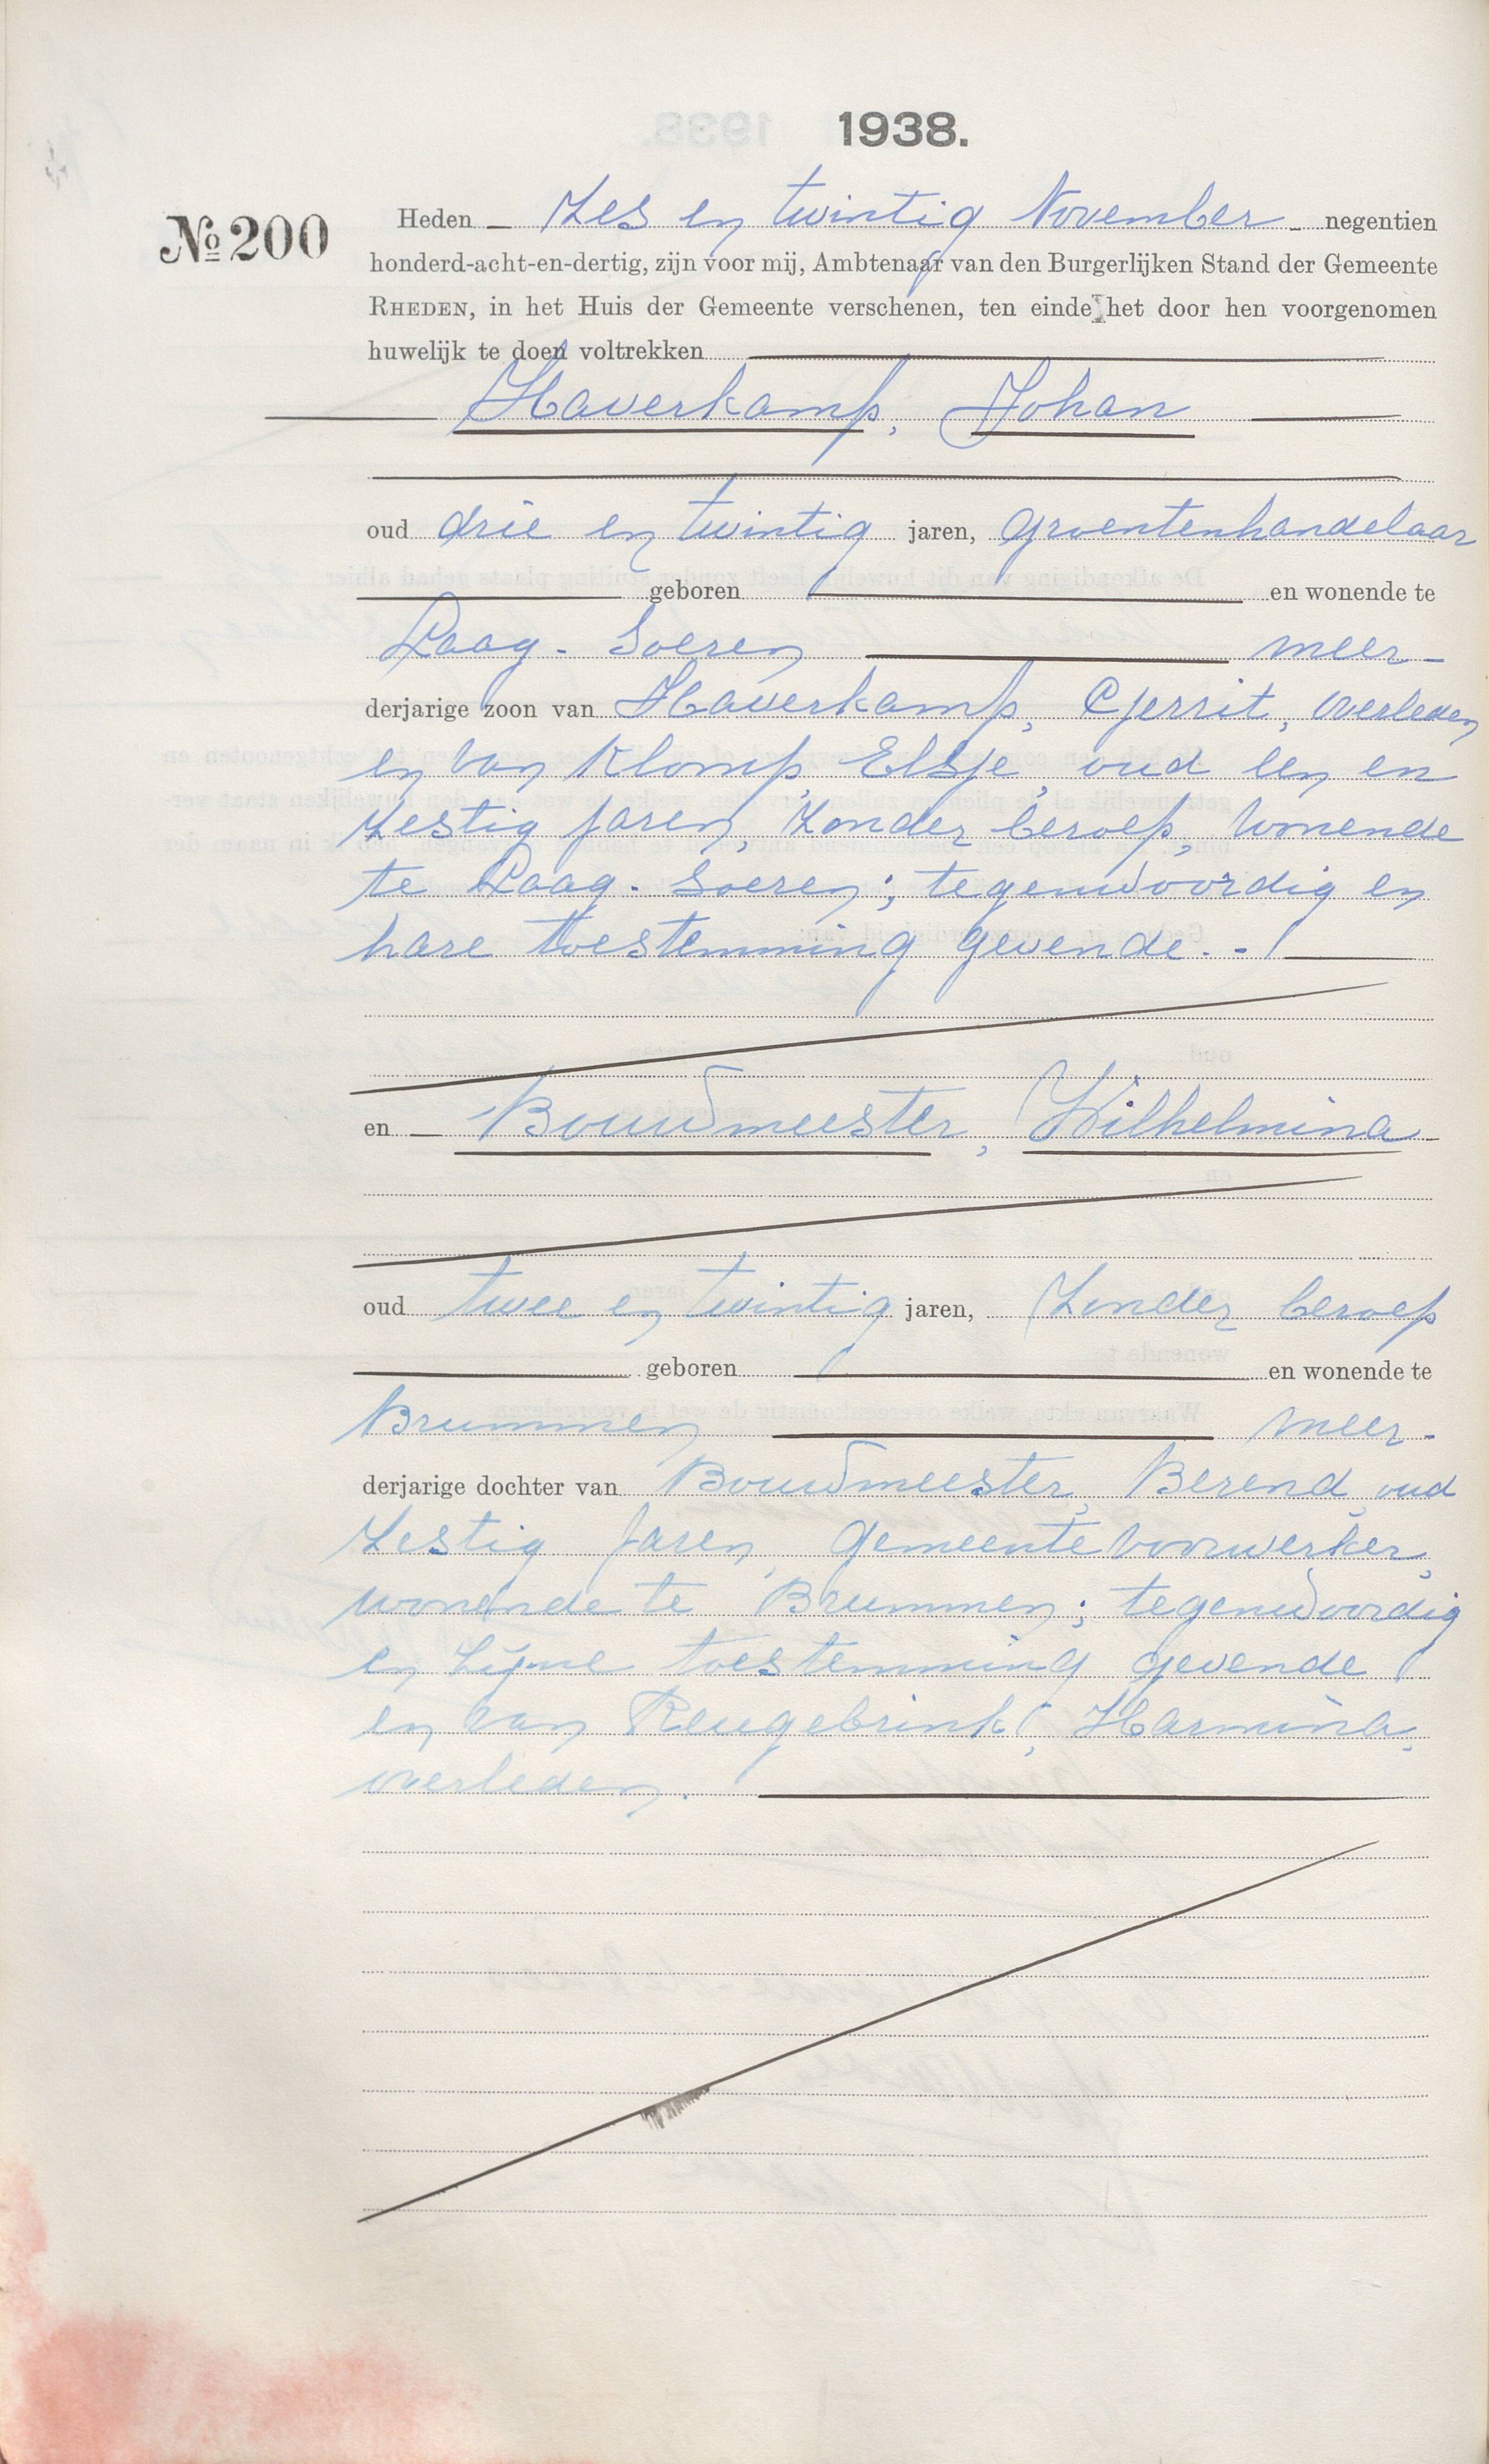 1938.
№ 200
Heden Zes en twintig November negentien
honderd-acht-en-dertig, zijn voor mij, Ambtenaar van den Burgerlijken Stand der Gemeente
RHEDEN, in het Huis der Gemeente verschenen, ten einde het door hen voorgenomen
huwelijk te doen voltrekken
Haverkamp, Johan
oud drie en twintig jaren, groentenhandelaar
geboren en wonende te
Laag-Soeren meer-
derjarige zoon van Haverkamp, Gerrit, overleden
en van Klomp, Elsje, oud een en
zestig jaren, zonder beroep, wonende
te Laag-Soeren; tegenwoordig en
hare toestemming gevende.-
en Bouwmeester, Wilhelmina
oud twee en twintig jaren, Zonder beroep
geboren en wonende te
Brummen meer-
derjarige dochter van Bouwmeester, Berend, oud
zestig jaren, gemeentevoorwerker,
wonende te Brummen; tegenwoordig
en zijne toestemming gevende
en van Reugebrink, Harmina,
overleden.